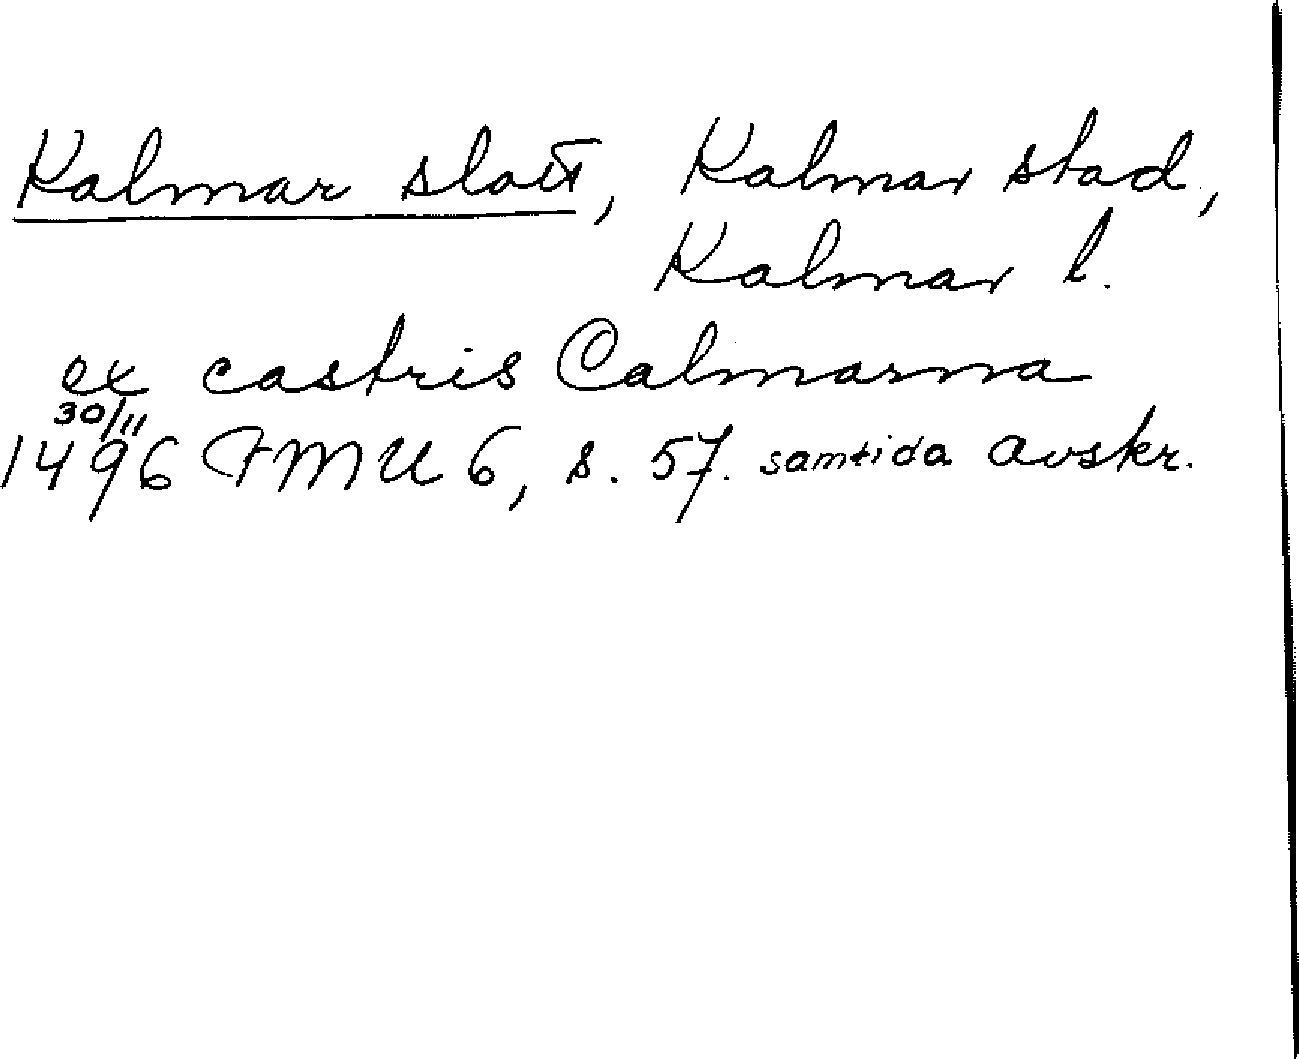 Kalmar slott, Kalmar stad,
Kalmar l.
ex castris Calmarna
30/11
1496 FMU 6, s. 57. samtida avskr.